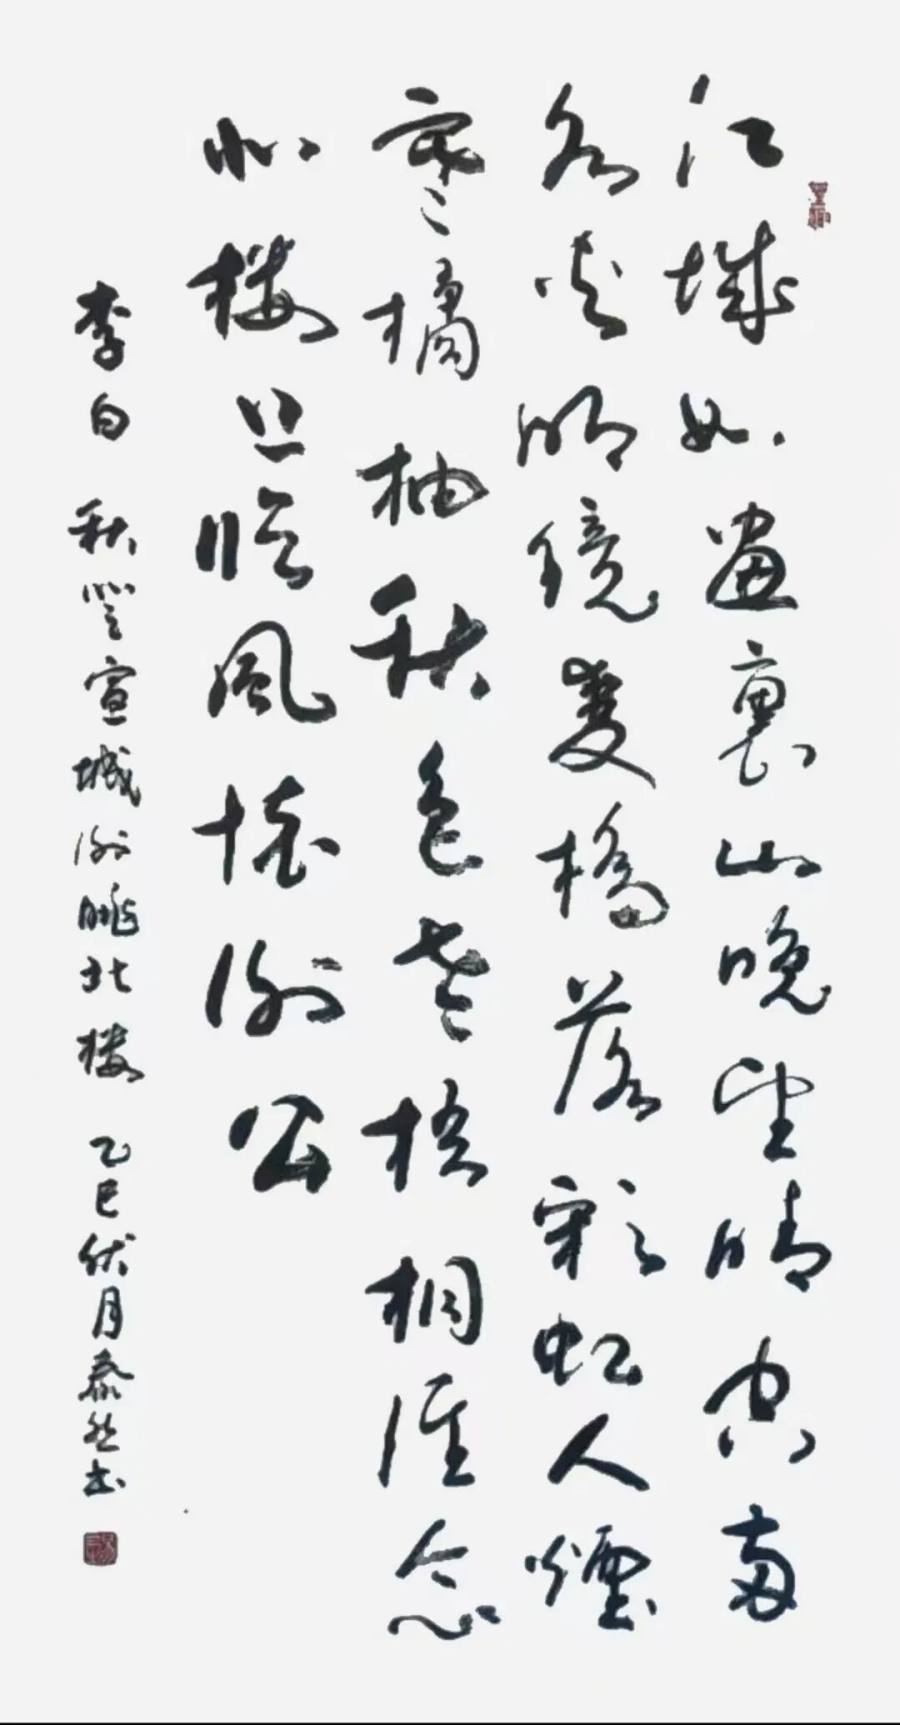 江城如畫裏山晚望晴空兩
水夾明鏡雙橋落彩虹人煙
寒橘柚秋色老梧桐誰念
北樓上臨風懷謝公
李白 秋登宣城謝眺北樓 乙巳伏月泰然书